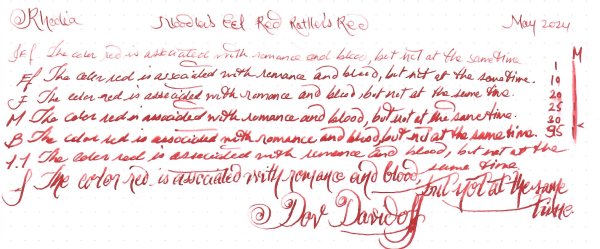 Rhodia Noodler's Eel Red Rattler's Red May 2024
The color red is associated with romance and blood, but not at the same time M
Ef The color red is associated with romance and blood, but not at the same time. 1
F The color red is associated with romance and blood but not at the same time. 10
M The color red is associated with romance and blood, but not at the same time. 20 25
B The color red is associated with romance and blood, but not at the same time. 30
1.1 The color red is associated with romance and blood, but not at the same time
f The color red is associated with romance and blood, but not at the same time.
Dov Davidoff